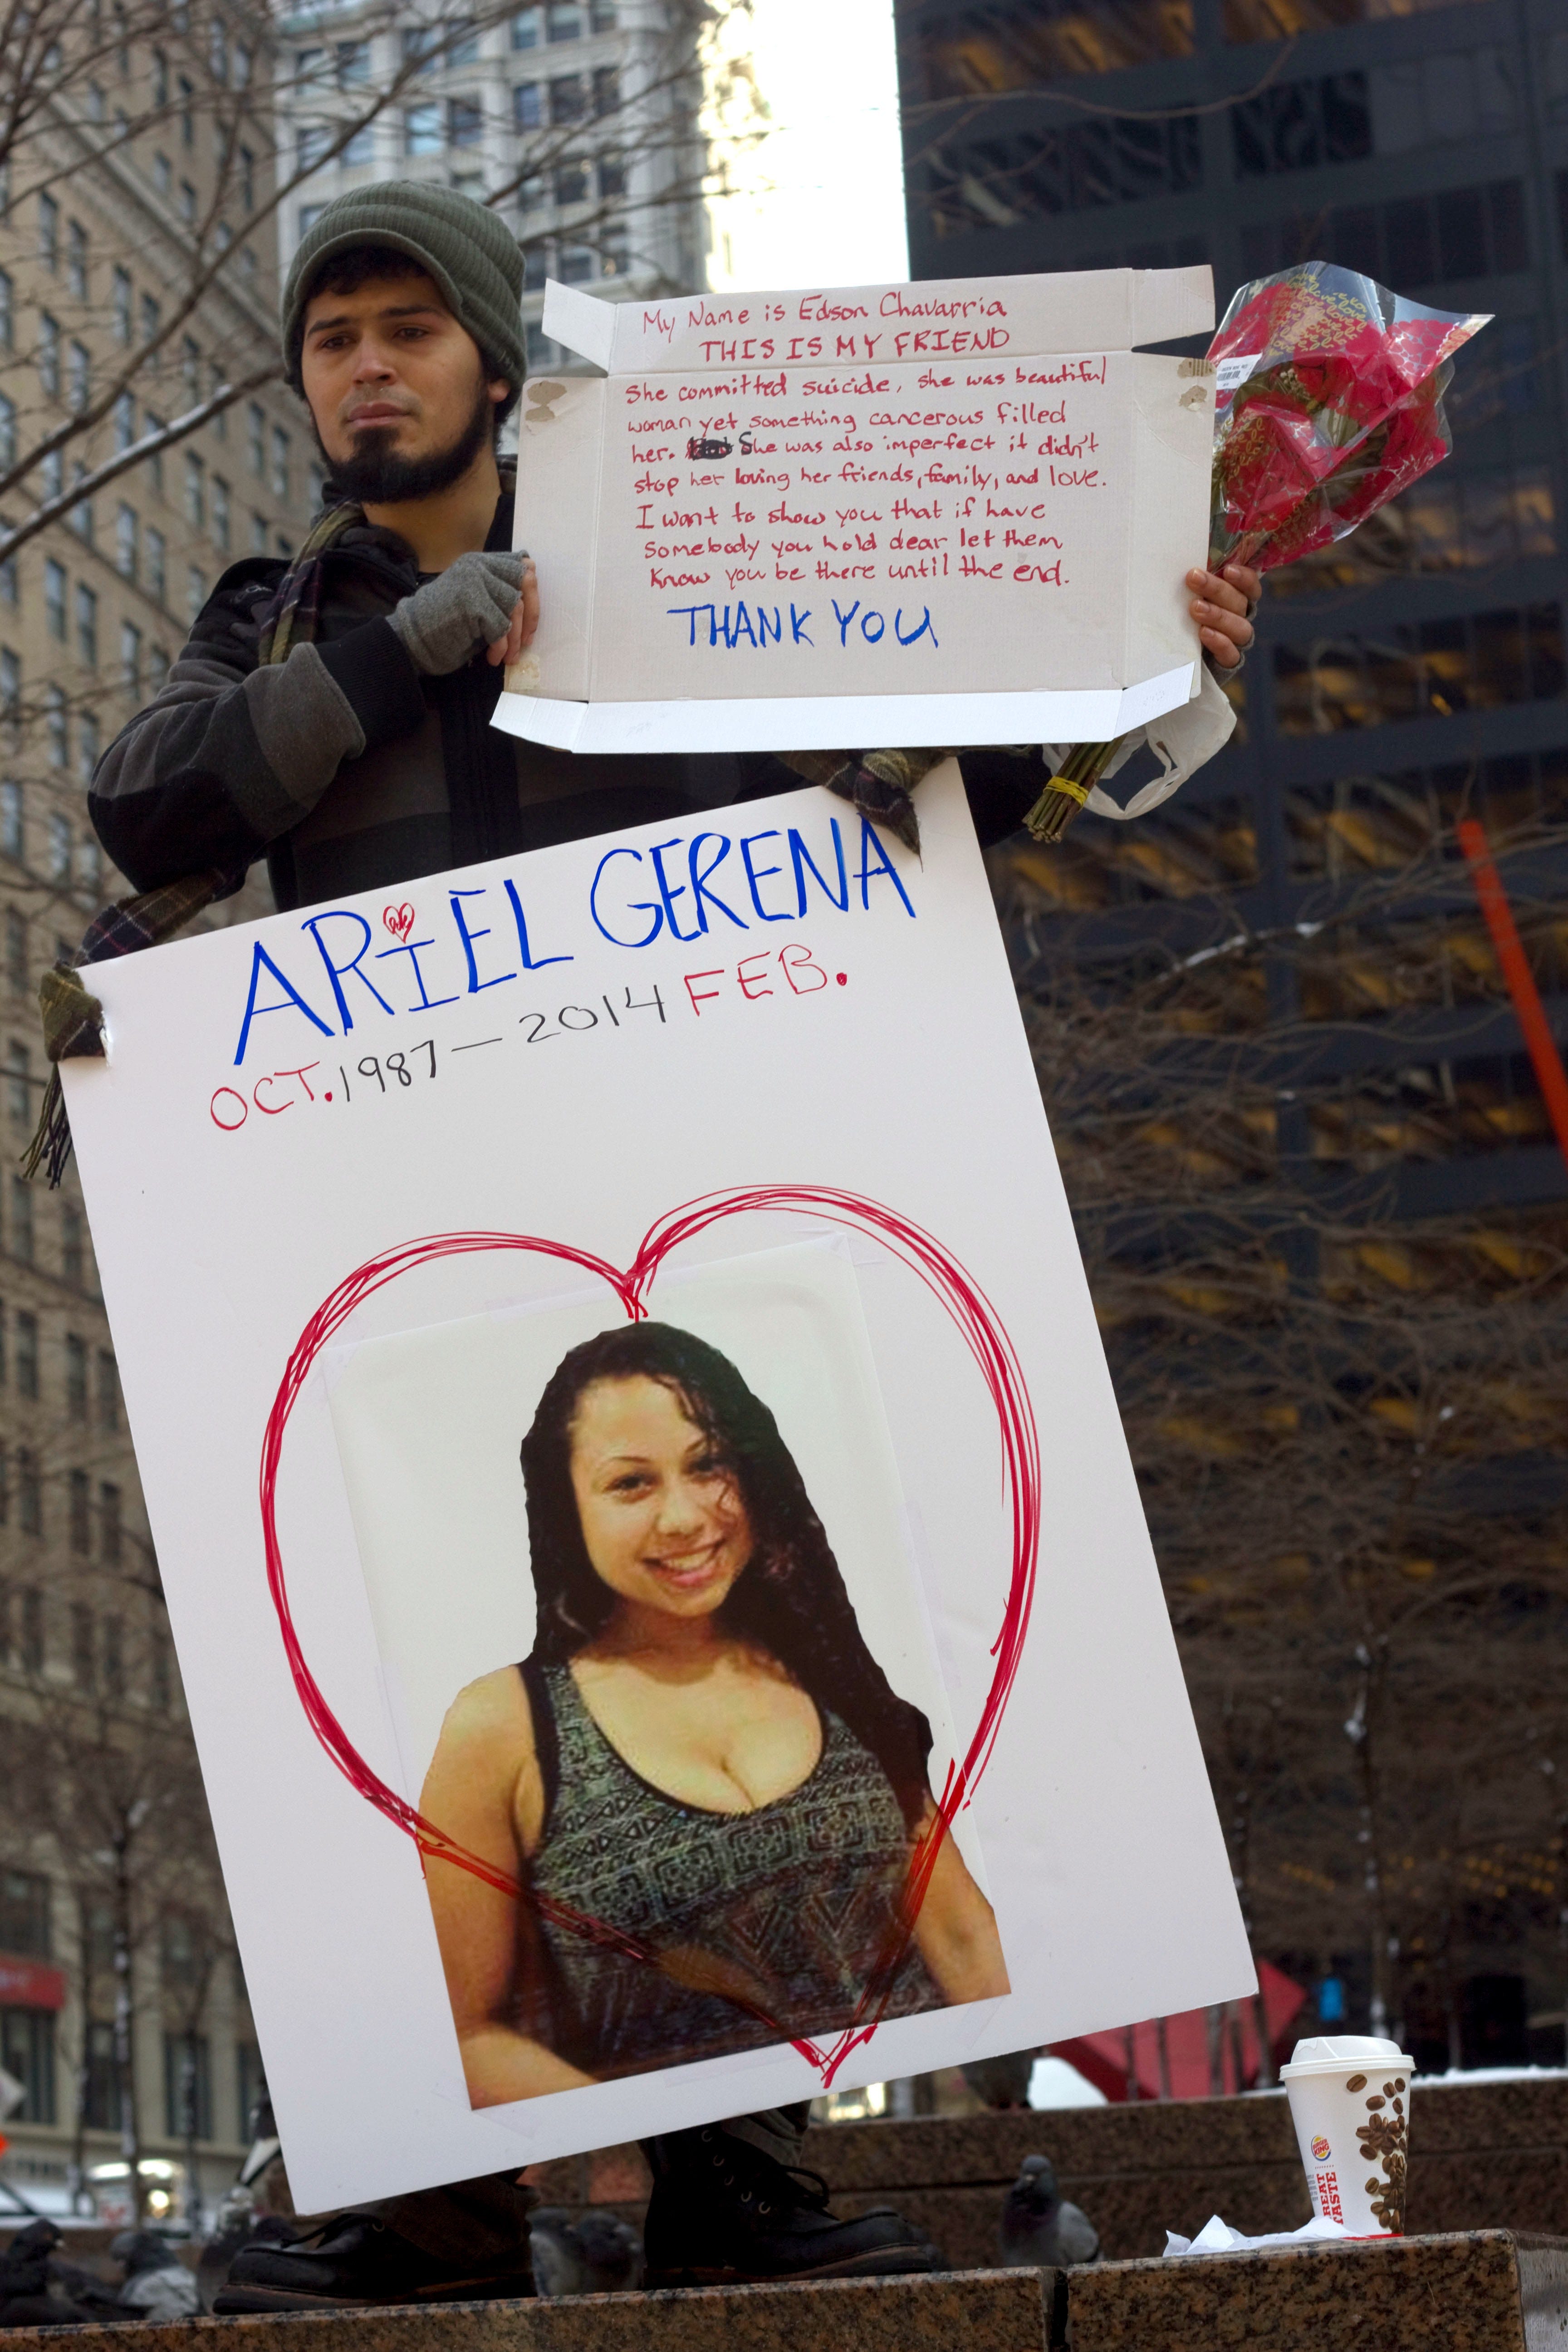 My Name is Edson Chavarria
THIS IS MY FRIEND
She committed suicide, she was beautiful
woman yet something cancerous filled
her. She was also imperfect it didn't
stop her loving her friends, family, and love.
I want to show you that if have
somebody you hold dear let them
know you be there until the end.
THANK YOU
ARIEL GERENA
OCT. 1987 — 2014 FEB.
BURGER
KING
GREAT
TASTE